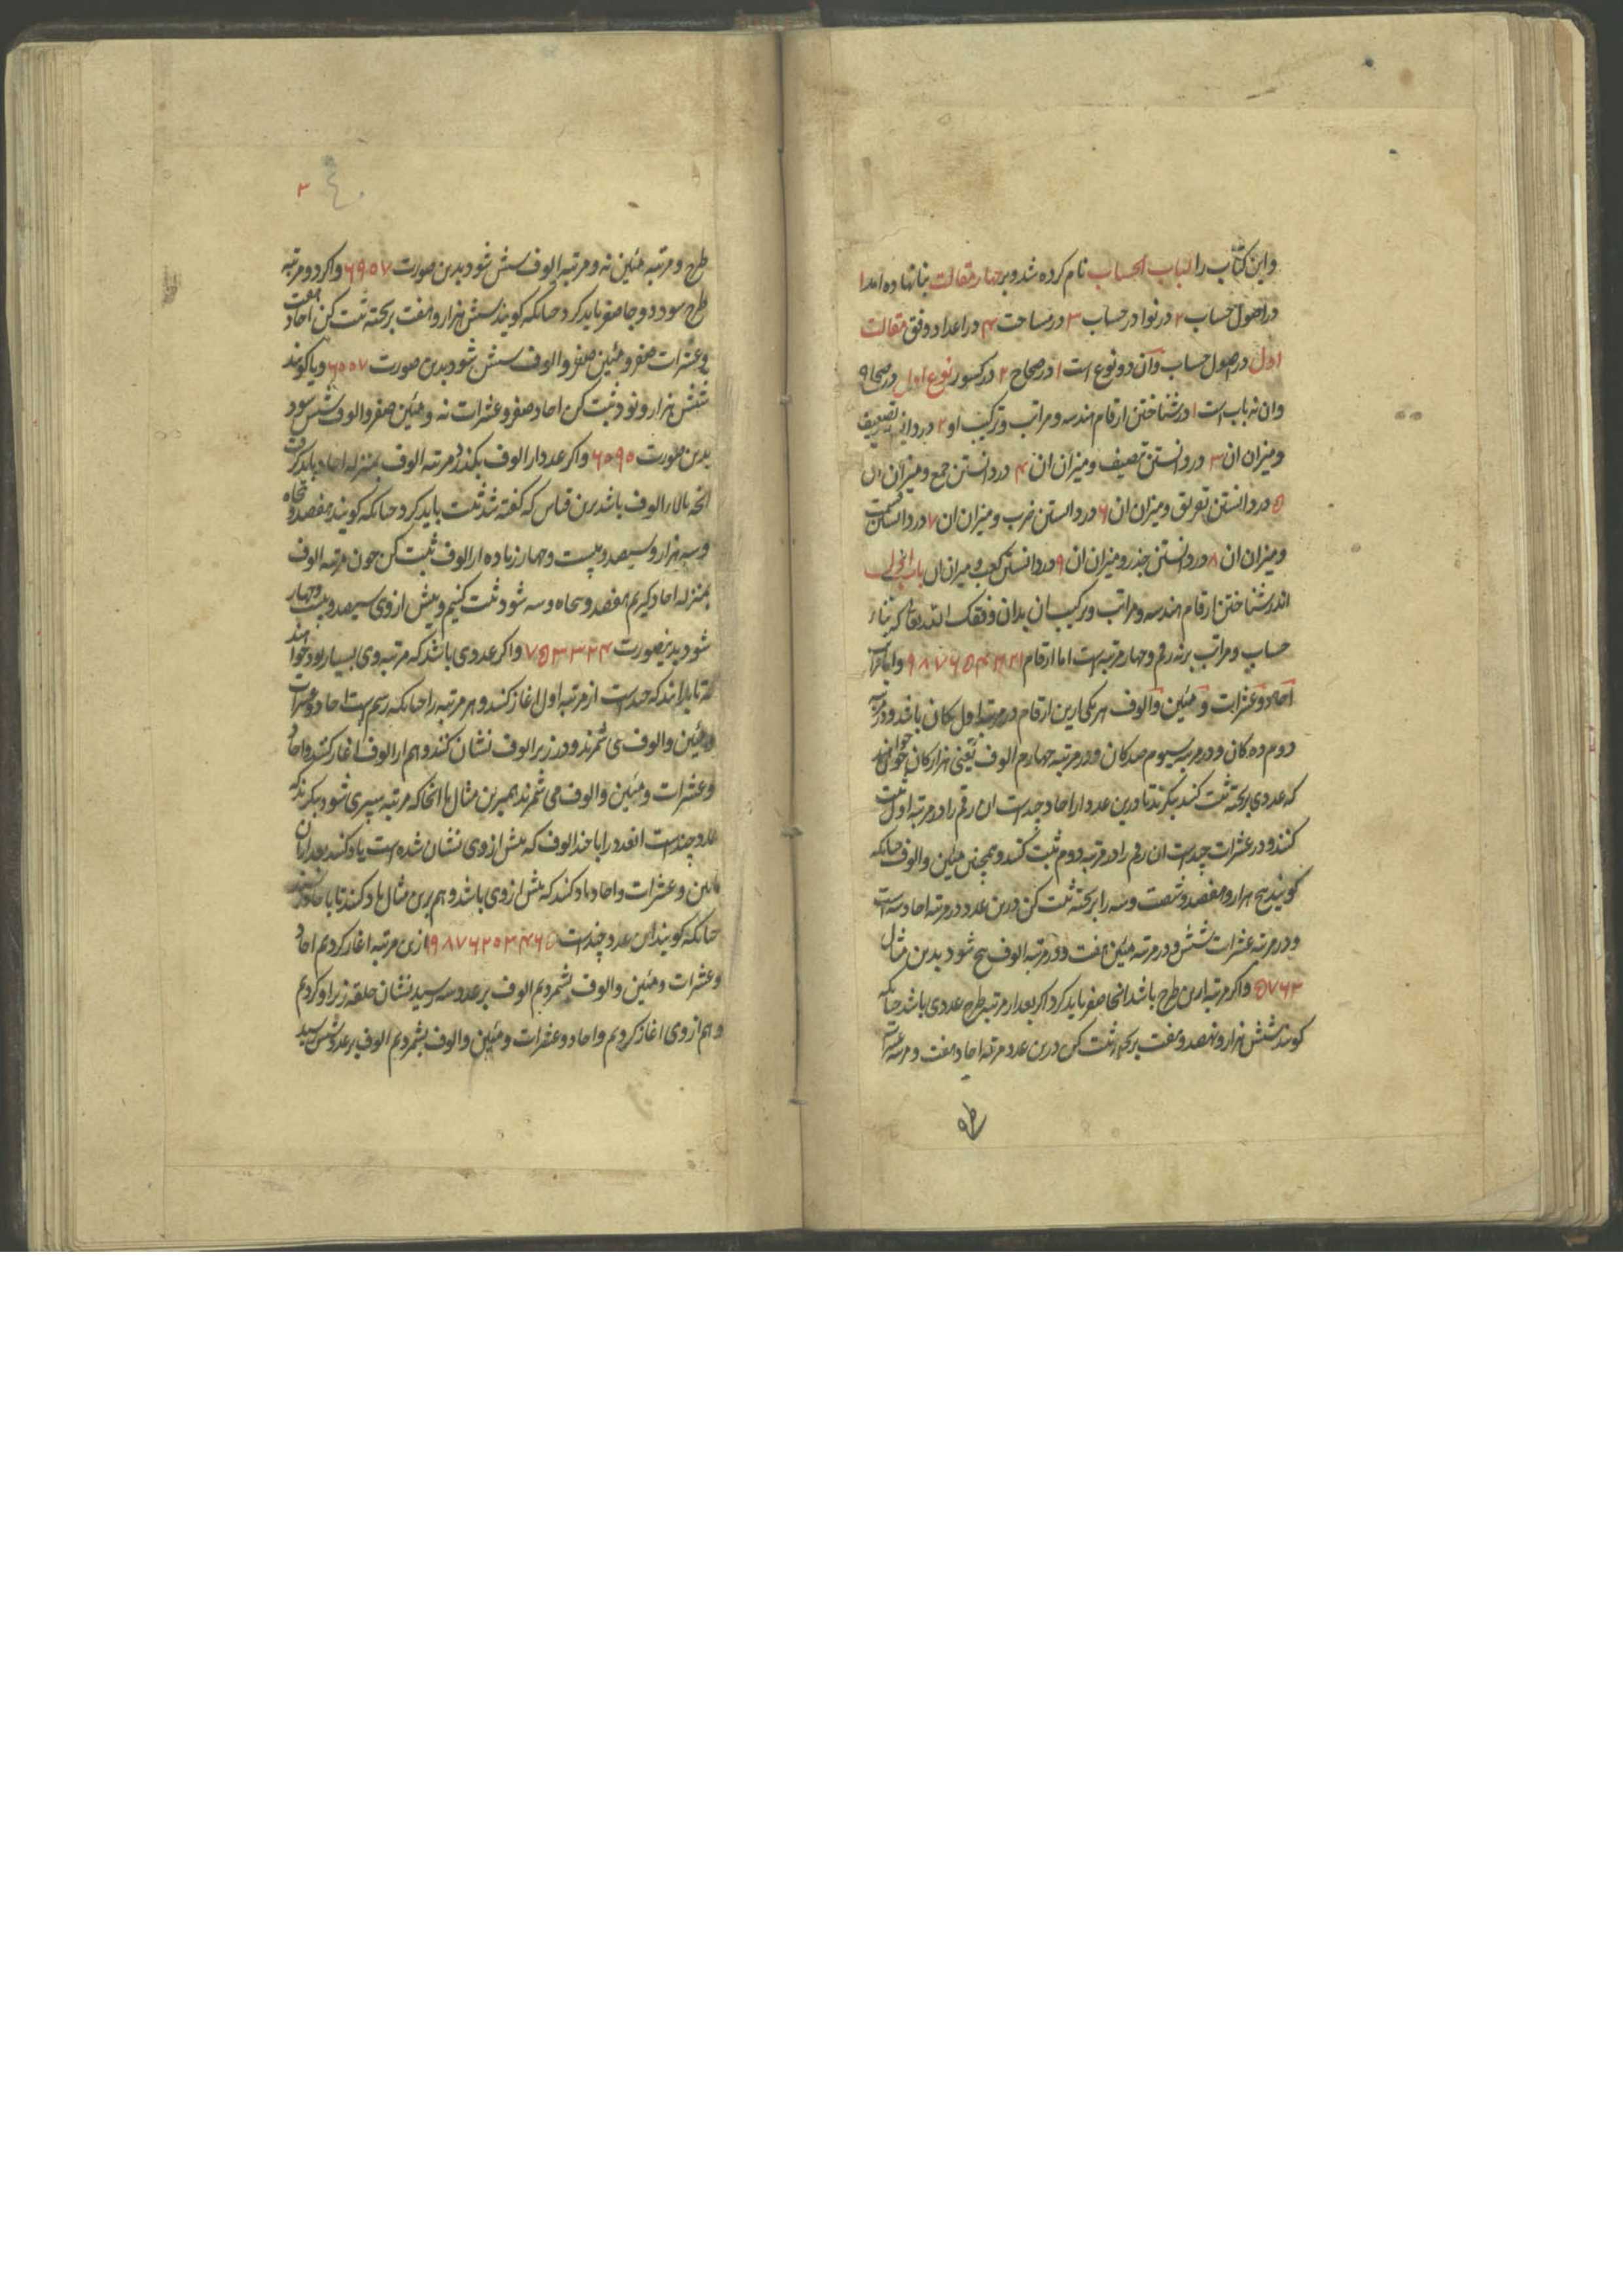 واین کتاب را لباب الحساب نام کرده شد و بر چهار مقالت بنا نهاده امد ا
در اصول حساب ۲ در نوادر حساب ۳ در مساحت ۴ در اعداد وفق مقالت
اول در اصول حساب وآن دو نوع است ا در صحاح ۲ در کسور نوع اول در صحاح
وان نه باب است ا در شناختن ارقام هندسه و مراتب و ترکیب او ۲ در دانستن تضعیف
ومیزان ان ۳ در دانستن تنصیف ومیزان ان ۴ در دانستن جمع ومیزان ان
۵ در دانستن تفریق ومیزان ان ۶ در دانستن ضرب ومیزان ان ۷ در دانستن قسمت
ومیزان ان ۸ در دانستن جذر ومیزان ان ۹ در دانستن کعب ومیزان ان باب اول
اندر شناختن ارقام هندسه ومراتب وترکیب ان بدان وفقک الله تعالی که بناء
حساب ومراتب بر نه رقم وچهار مرتبه است اما ارقام ۱ ۲ ۳ ۴ ۵ ۶ ۷ ۸ ۹ واما مراتب
آحاد وعشرات ومئین والوف هر یکی ازین ارقام در مرتبه اول یکان باشد ودر مرتبه
دوم ده کان ودر مرتبه سیوم صد کان ودر مرتبه چهارم الوف یعنی هزار کان چون خواهند
که عددی بر تخته ثبت کنند بنکرند تا درین عدد از احاد چند است ان رقم را در مرتبه اول ثبت
کنند ودر عشرات چند است ان رقم را در مرتبه دوم ثبت کنند وهمچنین مئین والوف چنانکه
کویند پنج هزار وهفصد وشصت وسه را بر تخته ثبت کن درین عدد در مرتبه احاد سه است
ودر مرتبه عشرات شش ودر مرتبه مئین هفت ودر مرتبه الوف پنج شود بدین مثال
۵۷۶۳ واکر مرتبه ازین طرح باشد انجا صفر باید کرد اکر بعد از مرتبه طرح عددی باشد چنانکه
کویند شش هزار ونهصد وهفت بر تخته ثبت کن درین عدد مرتبه احاد هفت ومرتبه عشرات
طرح
۳
طرح ومرتبه مئین نه ومرتبه الوف شش شود بدین صورت ۶۹۰۷ واکر دو مرتبه
طرح شود دو جا صفر باید کرد چنانکه کویند شش هزار وهفت بر تخته ثبت کن احاد هفت
وعشرات صفر ومئین صفر والوف شش شود بدین صورت ۶۰۰۷ ویا کویند
شش هزار ونود ثبت کن احاد صفر وعشرات نه ومئین صفر والوف شش شود
بدین صورت ۶۰۹۰ واکر عدد از الوف بکذرد مرتبه الوف بمنزله احاد باید کرفت
انچه بالاء الوف باشد برین قیاس که کفته شد ثبت باید کرد چنانکه کویند هفصد وپنجاه
وسه هزار وسیصد وبیست وچهار زیاده از الوف ثبت کن چون مرتبه الوف
بمنزله احاد کیریم هفصد وپنجاه وسه شود ثبت کنیم وپیش از وی سیصد وبیست وچهار
شود بدینصورت ۷۵۳۳۲۴ واکر عددی باشد که مرتبه وی بسیار بود خواهند
که تا بدانند که چند است از مرتبه اول اغاز کنند وهر مرتبه را چنانکه رسم است احاد وعشرات
ومئین والوف می شمرند ودر زیر الوف نشان کنند وهم از الوف اغاز کنند واحاد
وعشرات ومئین والوف می شمرند همبرین مثال تا انجا که مرتبه سپری شود بنکرند که
عدد چند است انقدر را با چند الوف که پیش از وی نشان شده است یاد کنند بعد از ان
مئین وعشرات واحاد یاد کنند که پیش از وی باشد وهم برین مثال یاد کنند تا باحاد رسند
چنانکه کویند این عدد چند است ۹۸۷۶۲۵۳۴۶۵ ازین مرتبه اغاز کردیم احاد
وعشرات ومئین والوف بشمردیم الوف بر عدد سه رسید نشان حلقه زیر او کردیم
وهم از وی اغاز کردیم واحاد وعشرات ومئین والوف بشمردیم الوف بر عدد شش رسید